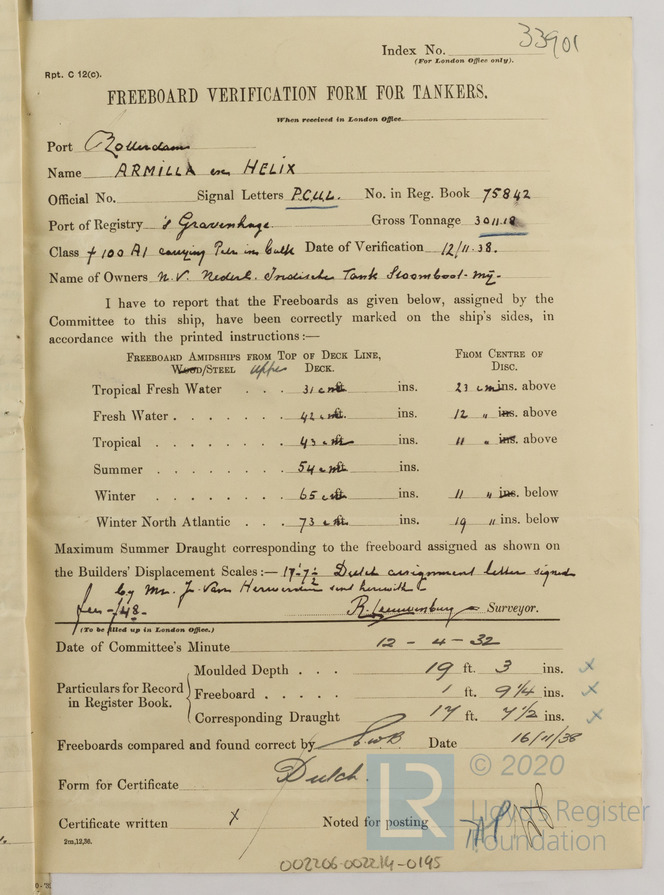 33901
Index No.
(For London Office only).
Rpt. C 12(c).
FREEBOARD VERIFICATION FORM FOR TANKERS.
When received in London Office
Port Rotterdam
Name ARMILLA ex HELIX
Official No. Signal Letters P.C.U.L. No. in Reg. Book 75842
Port of Registry 's Gravenhage Gross Tonnage 3011.18
Class + 100 A1 carrying Petr. in bulk Date of Verification 12/11.38.
Name of Owners N.V. Nederl. Indische Tank Stoomboot-mij.
I have to report that the Freeboards as given below, assigned by the
Committee to this ship, have been correctly marked on the ship's sides, in
accordance with the printed instructions:—
Freeboard Amidships from Top of Deck Line, From Centre of
Wood/Steel upper Deck. Disc.
Tropical Fresh Water . . . 31 ins. 23 cm ins. above
Fresh Water . . . . . . . 42 ins. 12 " ins. above
Tropical . . . . . . . . 43 ins. 11 " ins. above
Summer . . . . . . . . 54 ins.
Winter . . . . . . . . 65 ins. 11 " ins. below
Winter North Atlantic . . . 73 ins. 19 " ins. below
Maximum Summer Draught corresponding to the freeboard assigned as shown on
the Builders' Displacement Scales:— 17'-7½ Dutch assignment letter signed
by Mr. J. Van Herwerden sent herewith
fee - f48.- R. Leeuwenburg Surveyor.
(To be filled up in London Office.)
Date of Committee's Minute 12 - 4 - 32
Moulded Depth . . . 19 ft. 3 ins. x
Particulars for Record
in Register Book.
Freeboard . . . . . 1 ft. 9¼ ins. x
Corresponding Draught 17 ft. 7½ ins. x
Freeboards compared and found correct by Date 16/11/38
Form for Certificate Dutch.
Certificate written x Noted for posting
2m,12,36.
© 2020
LR
Lloyd's Register
Foundation
002206-002214-0195